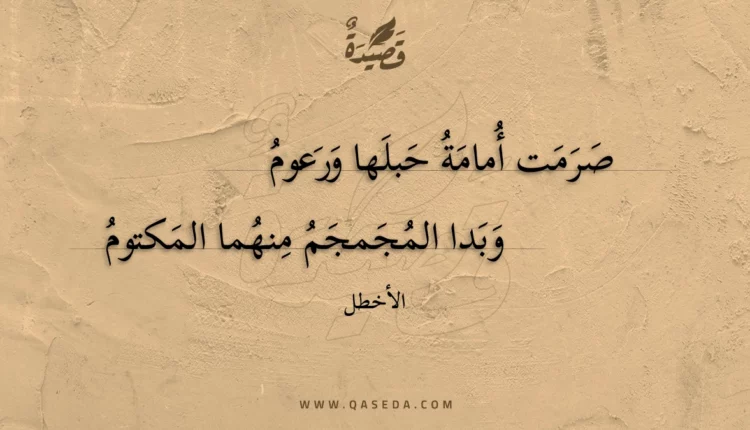 قَصِيْدَةٌ
صَرَمَت أُمامَةُ حَبلَها وَرَعومُ
وَبَدا المُجَمجَمُ مِنهُما المَكتومُ
الأخطل
WWW.QASEDA.COM